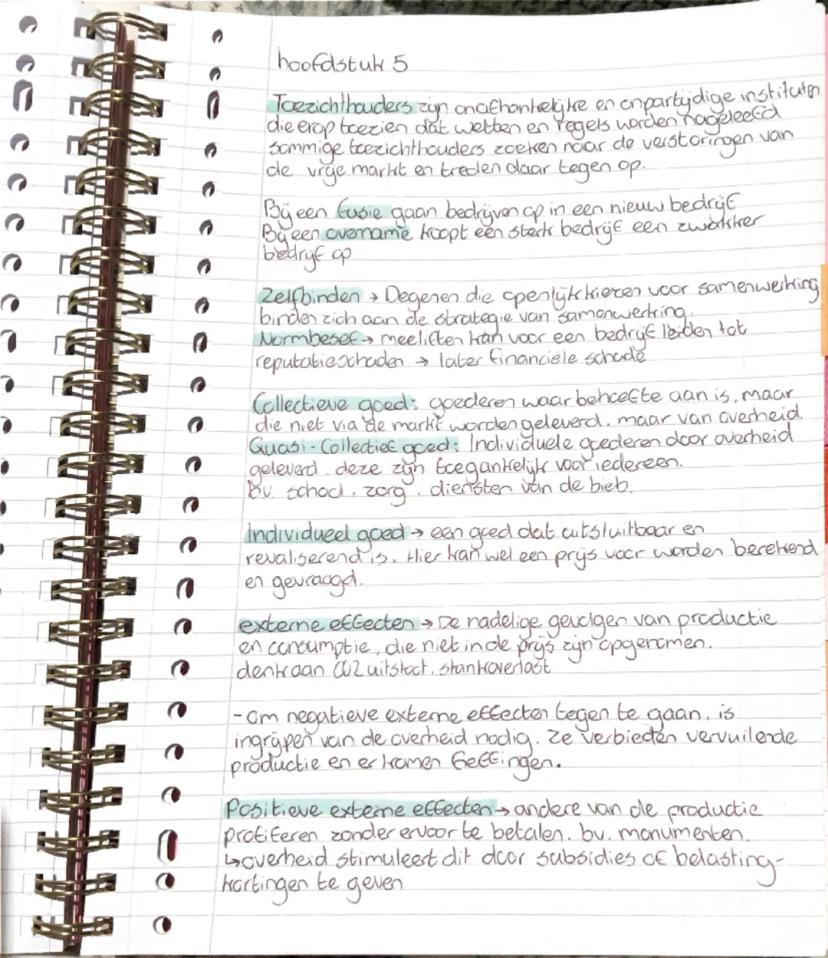 hoofdstuk 5
Toezichthouders zijn onafhankelijke en onpartijdige instituten
die erop toezien dat wetten en regels worden nageleefd
sommige toezichthouders zoeken naar de verstoringen van
de vrije markt en treden daar tegen op.
Bij een fusie gaan bedrijven op in een nieuw bedrijf
Bij een overname koopt een sterk bedrijf een zwakker
bedrijf op
Zelfbinden → Degenen die openlijk kiezen voor samenwerking
binden zich aan de strategie van samenwerking.
Normbesef → meeliften kan voor een bedrijf leiden tot
reputatieschaden → later financiele schade
Collectieve goed: goederen waar behoefte aan is, maar
die niet via de markt worden geleverd. maar van overheid.
Quasi-Collectief goed: Individuele goederen door overheid
geleverd. deze zijn toegankelijk voor iedereen.
b.v. school. zorg. diensten van de bieb.
Individueel goed → een goed dat uitsluitbaar en
revaliserend is. Hier kan wel een prijs voor worden berekend
en gevraagd.
externe effecten → De nadelige gevolgen van productie
en consumptie, die niet in de prijs zijn opgenomen.
denk aan CO2 uitstoot. stankoverlast
- om negatieve externe effecten tegen te gaan. is
ingrijpen van de overheid nodig. Ze verbieden vervuilende
productie en er komen heffingen.
Positieve externe effecten → andere van de productie
profiteren zonder ervoor te betalen. bv. monumenten.
↳ overheid stimuleert dit door subsidies of belasting-
kortingen te geven